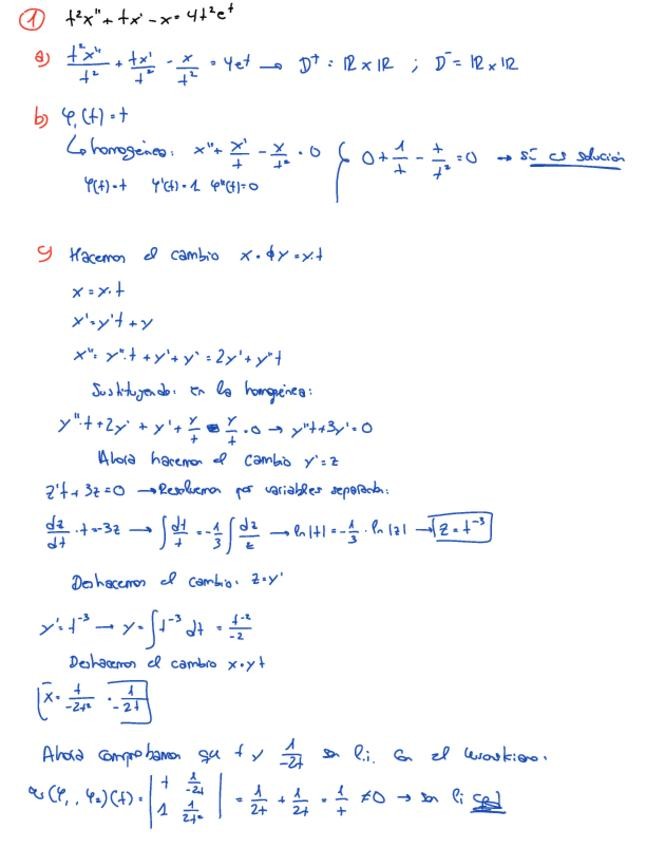 ① t²x'' + tx' - x = 4t²e^t
a) t²x''/t² + tx'/t² - x/t² = 4e^t → D⁺ = ℝ x ℝ ; D⁻ = ℝ x ℝ
b) φ₁(t) = t
↳ homogénea: x'' + x'/t - x/t² = 0 { 0 + 1/t - t/t² = 0 → sí es solución
φ(t) = t φ'(t) = 1 φ''(t) = 0
c) Hacemos el cambio x = φy = y.t
x = y.t
x' = y't + y
x'' = y''.t + y' + y' = 2y' + y''t
Sustituyendo en la homogénea:
y''.t + 2y' + y' + y/t - y/t = 0 → y''t + 3y' = 0
Ahora hacemos el cambio y' = z
z't + 3z = 0 → Resolvemos por variables separadas:
dz/dt . t = -3z → ∫ dt/t = -1/3 ∫ dz/z → ln|t| = -1/3 . ln|z| → z = t⁻³
Deshacemos el cambio z = y'
y' = t⁻³ → y = ∫ t⁻³ dt = t⁻²/-2
Deshacemos el cambio x = yt
x = t/-2t² = 1/-2t
Ahora comprobamos que t y 1/-2t son l.i. con el wronskiano.
w(φ₁, φ₂)(t) = | t 1/-2t ; 1 1/2t² | = 1/2t + 1/2t = 1/t ≠ 0 → son li